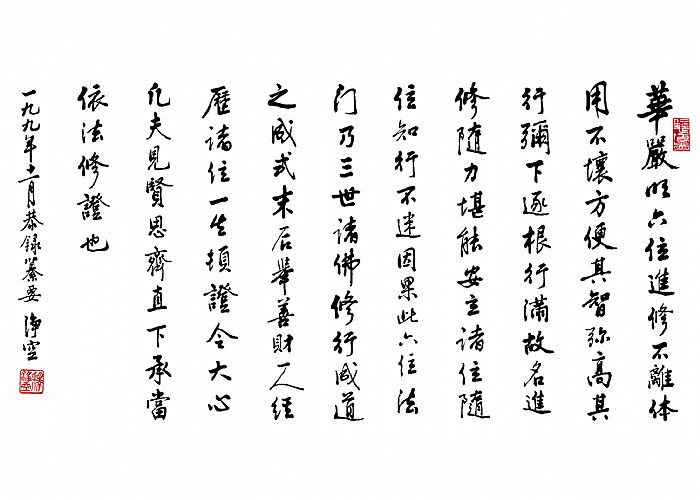 華嚴明六位進修不離体
用不壞方便其智弥高其
行彌下逐根行滿故名進
修隨力堪能安立諸位隨
位知行不迷因果此六位法
門乃三世諸佛修行成道
之成式末后舉善財一人經
歷諸位一生頓證令大心
凡夫見賢思齊直下承當
依法修證也
一九九九年十一月恭錄纂要 淨空